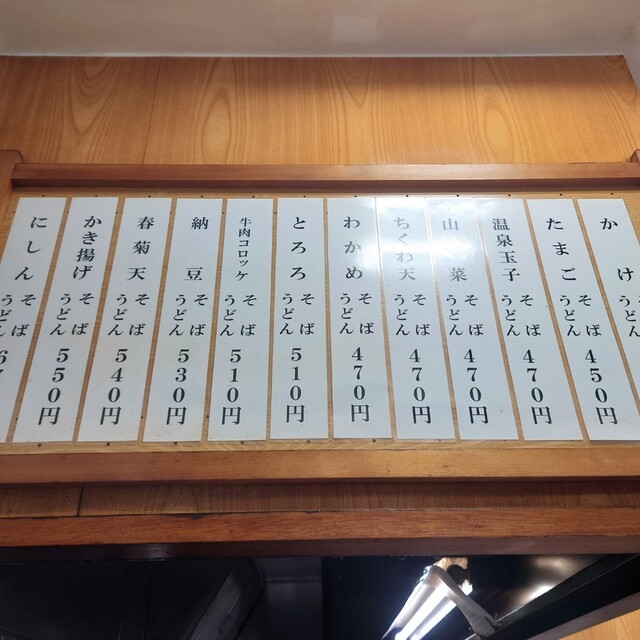 かけ そば うどん
たまご そば うどん 450円
温泉玉子 そば うどん 470円
山菜 そば うどん 470円
ちくわ天 そば うどん 470円
わかめ そば うどん 470円
とろろ そば うどん 510円
牛肉コロッケ そば うどん 510円
納豆 そば うどん 530円
春菊天 そば うどん 540円
かき揚げ そば うどん 550円
にしん そば うどん